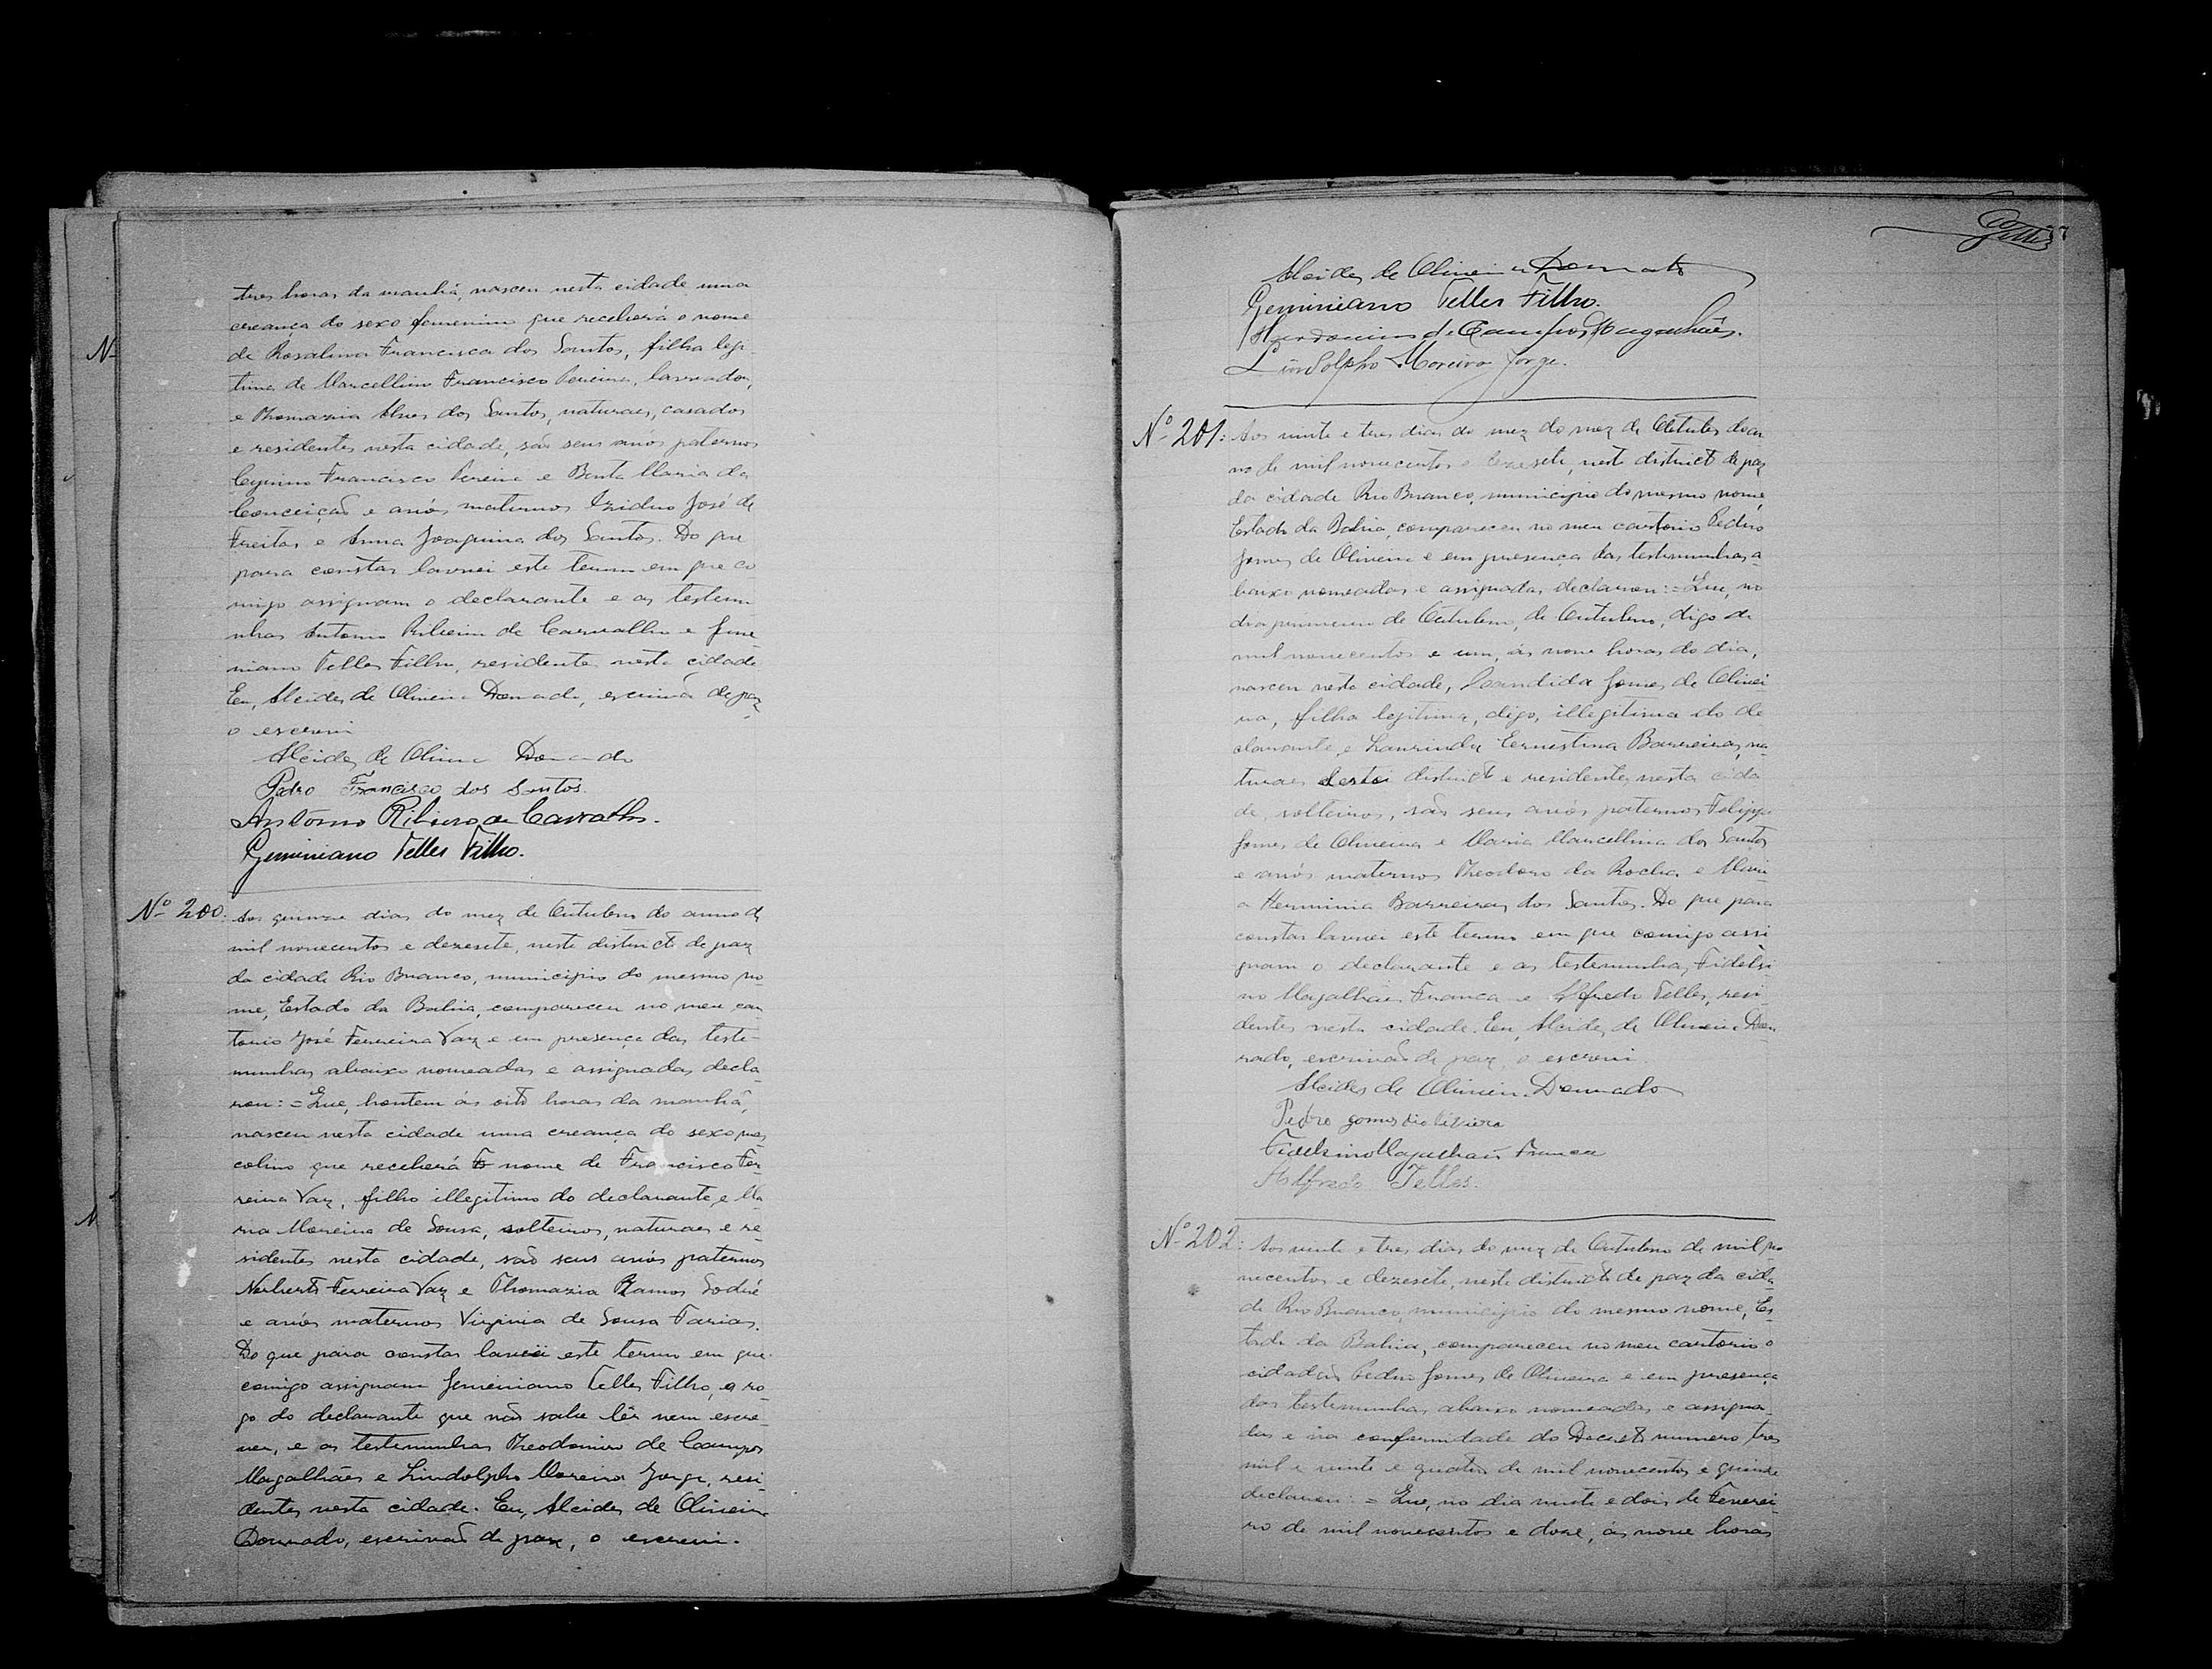 tres horas da manhã, nasceu nesta cidade uma
creança do sexo femenino que receberá o nome
de Rosalina Francisca dos Santos, filha legi-
tima de Marcellino Francisco Pereira, lavrador,
e Thomazia Alves dos Santos, naturaes, casados
e residentes nesta cidade, são seus avós paternos
Francisco Pereira e Benta Maria da
Conceição e avós maternos Izidro José de
Freitas e Anna Joaquina dos Santos. Do que
para constar lavrei este termo em que co
migo assignam o declarante e as testem
nhas Antonio Ribeiro de Carvalho e Gemi
niano Telles Filho, residentes nesta cidade.
Eu, Alcides de Oliveira Dourado, escrivão de paz
o escrevi
Alcides de Oliveira Dourado
Pedro Francisco dos Santos.
Antonio Ribeiro de Carvalho.
Geminiano Telles Filho.
Nº 200: Aos quinze dias do mez de Outubro do anno de
mil novecentos e dezesete, neste districto de paz
da cidade Rio Branco, municipio do mesmo no
me, Estado da Bahia, compareceu no meu car
torio José Ferreira Vaz e em presença das teste-
munhas abaixo nomeadas e assignadas decla-
rou: = Que, hontem ás oito horas da manhã,
nasceu nesta cidade uma creança do sexo mas
colino que receberá o nome de Francisco Fer-
reira Vaz, filho illegitimo do declarante e Ma
ria Moreira de Sousa, solteiros, naturaes e re-
sidentes nesta cidade, são seus avós paternos
Norberto Ferreira Vaz e Thomazia Ramos Sodré
e avós maternos Virginia de Sousa Farias.
Do que para constar lavrei este termo em que
comigo assignam Geminiano Telles Filho, a ro-
go do declarante que não sabe lêr nem escre-
ver, e as testemunhas Theodomiro de Campos
Magalhães e Lindolpho Moreira Jorge, resi-
dentes nesta cidade. Eu, Alcides de Oliveira
Dourado, escrivão de paz, o escrevi.
Alcides de Oliveira Dourado
Geminiano Telles Filho.
Theodomiro de Campos Magalhães.
Lindolpho Moreira Jorge.
Nº 201: Aos vinte e tres dias do mez do mez de Outubro do an
no de mil novecentos e dezesete, neste districto de paz
da cidade Rio Branco, municipio do mesmo nome
Estado da Bahia, compareceu no meu cartorio Pedro
Gomes de Oliveira e em presença das testemunhas a-
baixo nomeadas e assignadas declarou: = Que, no
dia primeiro de Outubro, de Outubro, digo de
mil novecentos e um, ás nove horas do dia,
nasceu nesta cidade, Candida Gomes de Olivei
ra, filha legitima, digo, illegitima do de
clarante e Laurinda Ernestina Barreiras, na
turaes deste districto e residentes nesta cida
de, solteiros, são seus avós paternos Felippe
Gomes de Oliveira e Maria Marcellina dos Santos
e avós maternos Theodoro da Rocha e Mari
a Herminia Barreiras dos Santos. Do que para
constar lavrei este termo em que comigo assi
gnam o declarante e as testemunhas, Fidelsi
no Magalhães Franca e Alfredo Telles, resi-
dentes nesta cidade. Eu, Alcides de Oliveira Dou
rado, escrivão de paz, o escrevi.
Alcides de Oliveira Dourado
Pedro gomes dio liveira
Fidelsino Magalhães Franca
Alfredo Telles.
Nº 202: Aos vinte e tres dias do mez de Outubro de mil no
vecentos e dezesete, neste districto de paz da cida
de Rio Branco, municipio do mesmo nome, Es-
tado da Bahia, compareceu no meu cartorio o
cidadão Pedro Gomes de Oliveira e em presença
das testemunhas abaixo nomeadas e assigna-
das e na conformidade do Decreto numero tres
mil e vinte e quatro de mil novecentos e quinze
declarou: = Que, no dia vinte e dois de Feverei
ro de mil novecentos e doze, ás nove horas